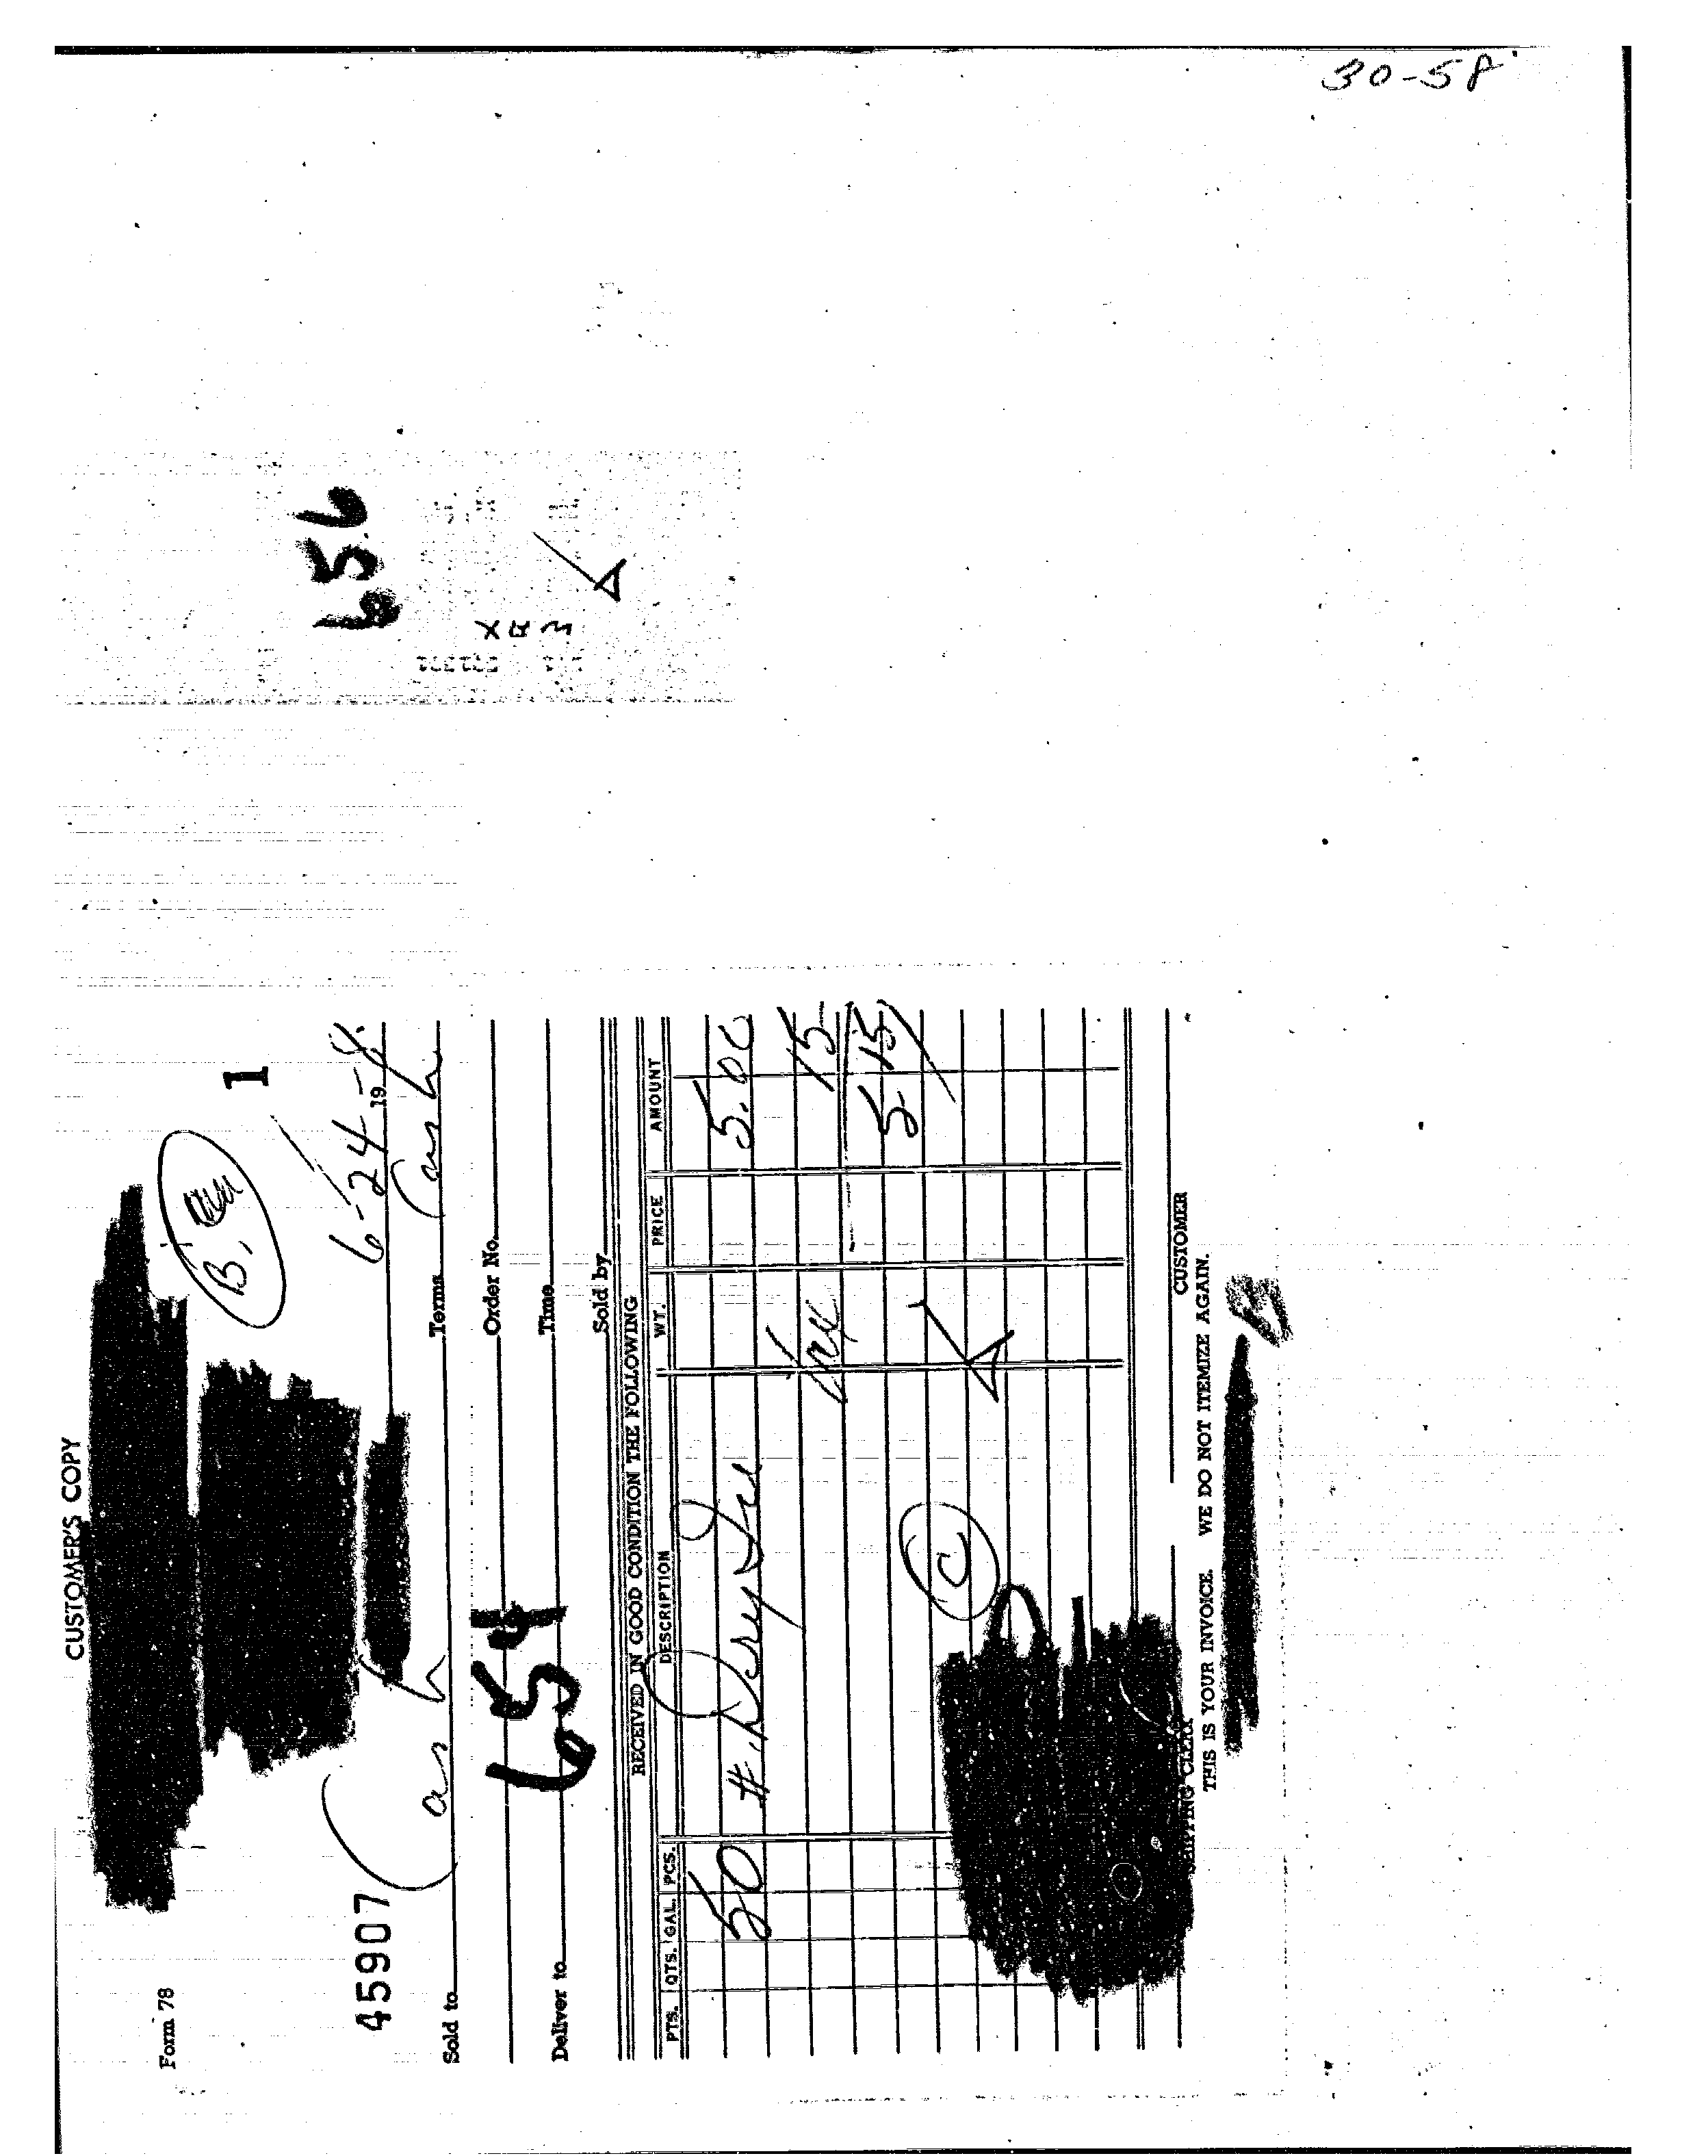 30-58
656
WAX
CUSTOMER'S COPY
Form 78
B,
1
45907
6-24-58.
19
Sold to Cash Terms Cash
Order No.
654
Deliver to Time
Sold by
RECEIVED IN GOOD CONDITION THE FOLLOWING
PTS. QTS. GAL. PCS. DESCRIPTION WT. PRICE AMOUNT
50 # Dry Ice 5.00
Tax 15
5.15
C
SHIPPING CLERK CUSTOMER
THIS IS YOUR INVOICE. WE DO NOT ITEMIZE AGAIN.